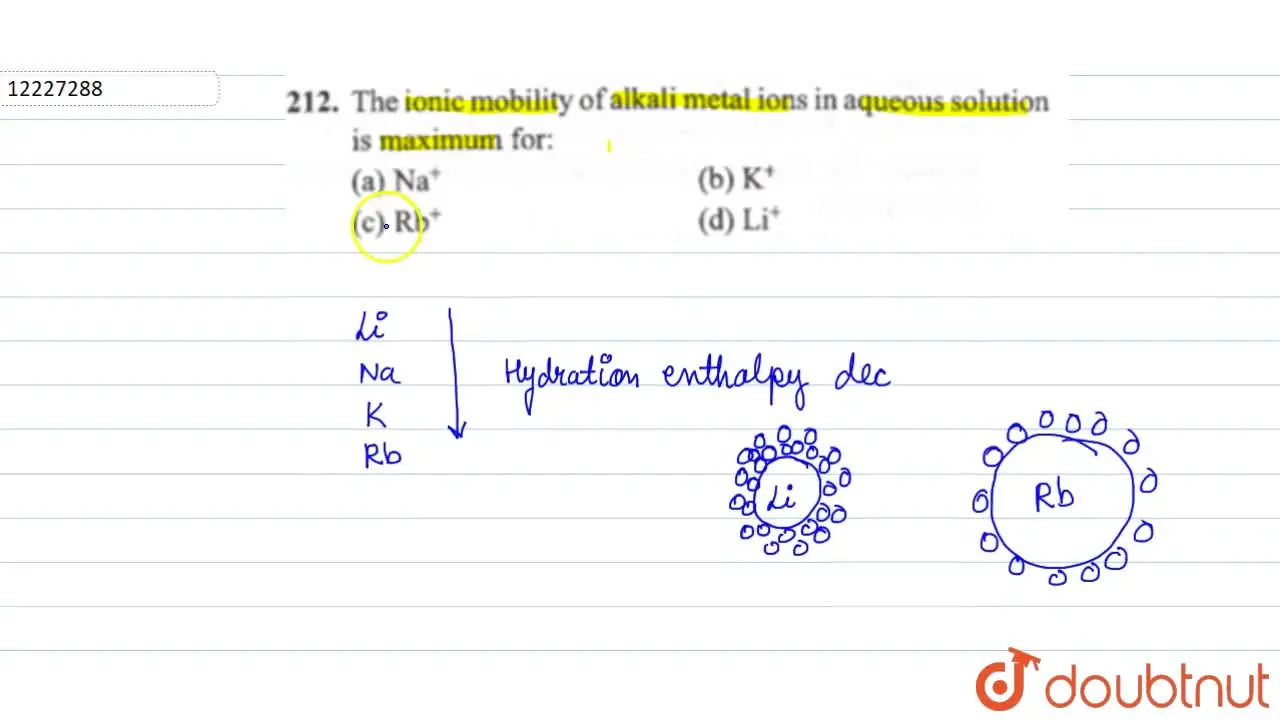 12227288
212. The ionic mobility of alkali metal ions in aqueous solution
is maximum for:
(a) Na⁺ (b) K⁺
(c) Rb⁺ (d) Li⁺
Li
Na
K
Rb
Hydration enthalpy dec
Li
Rb
doubtnut